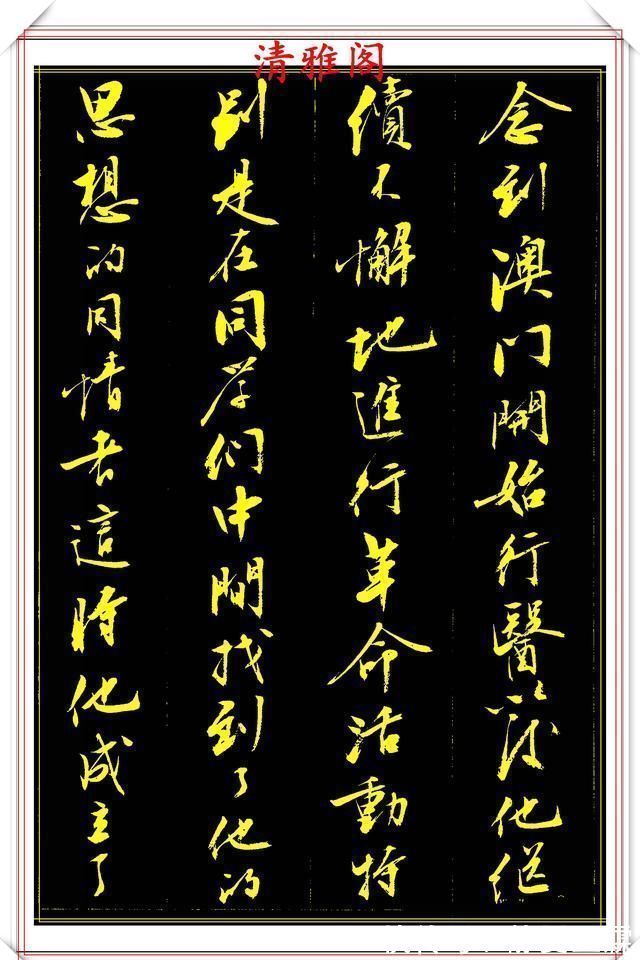 清雅阁
念到澳门開始行醫後他继
續不懈地進行革命活動特
别是在同学们中間找到了他的
思想的同情者這時他成立了